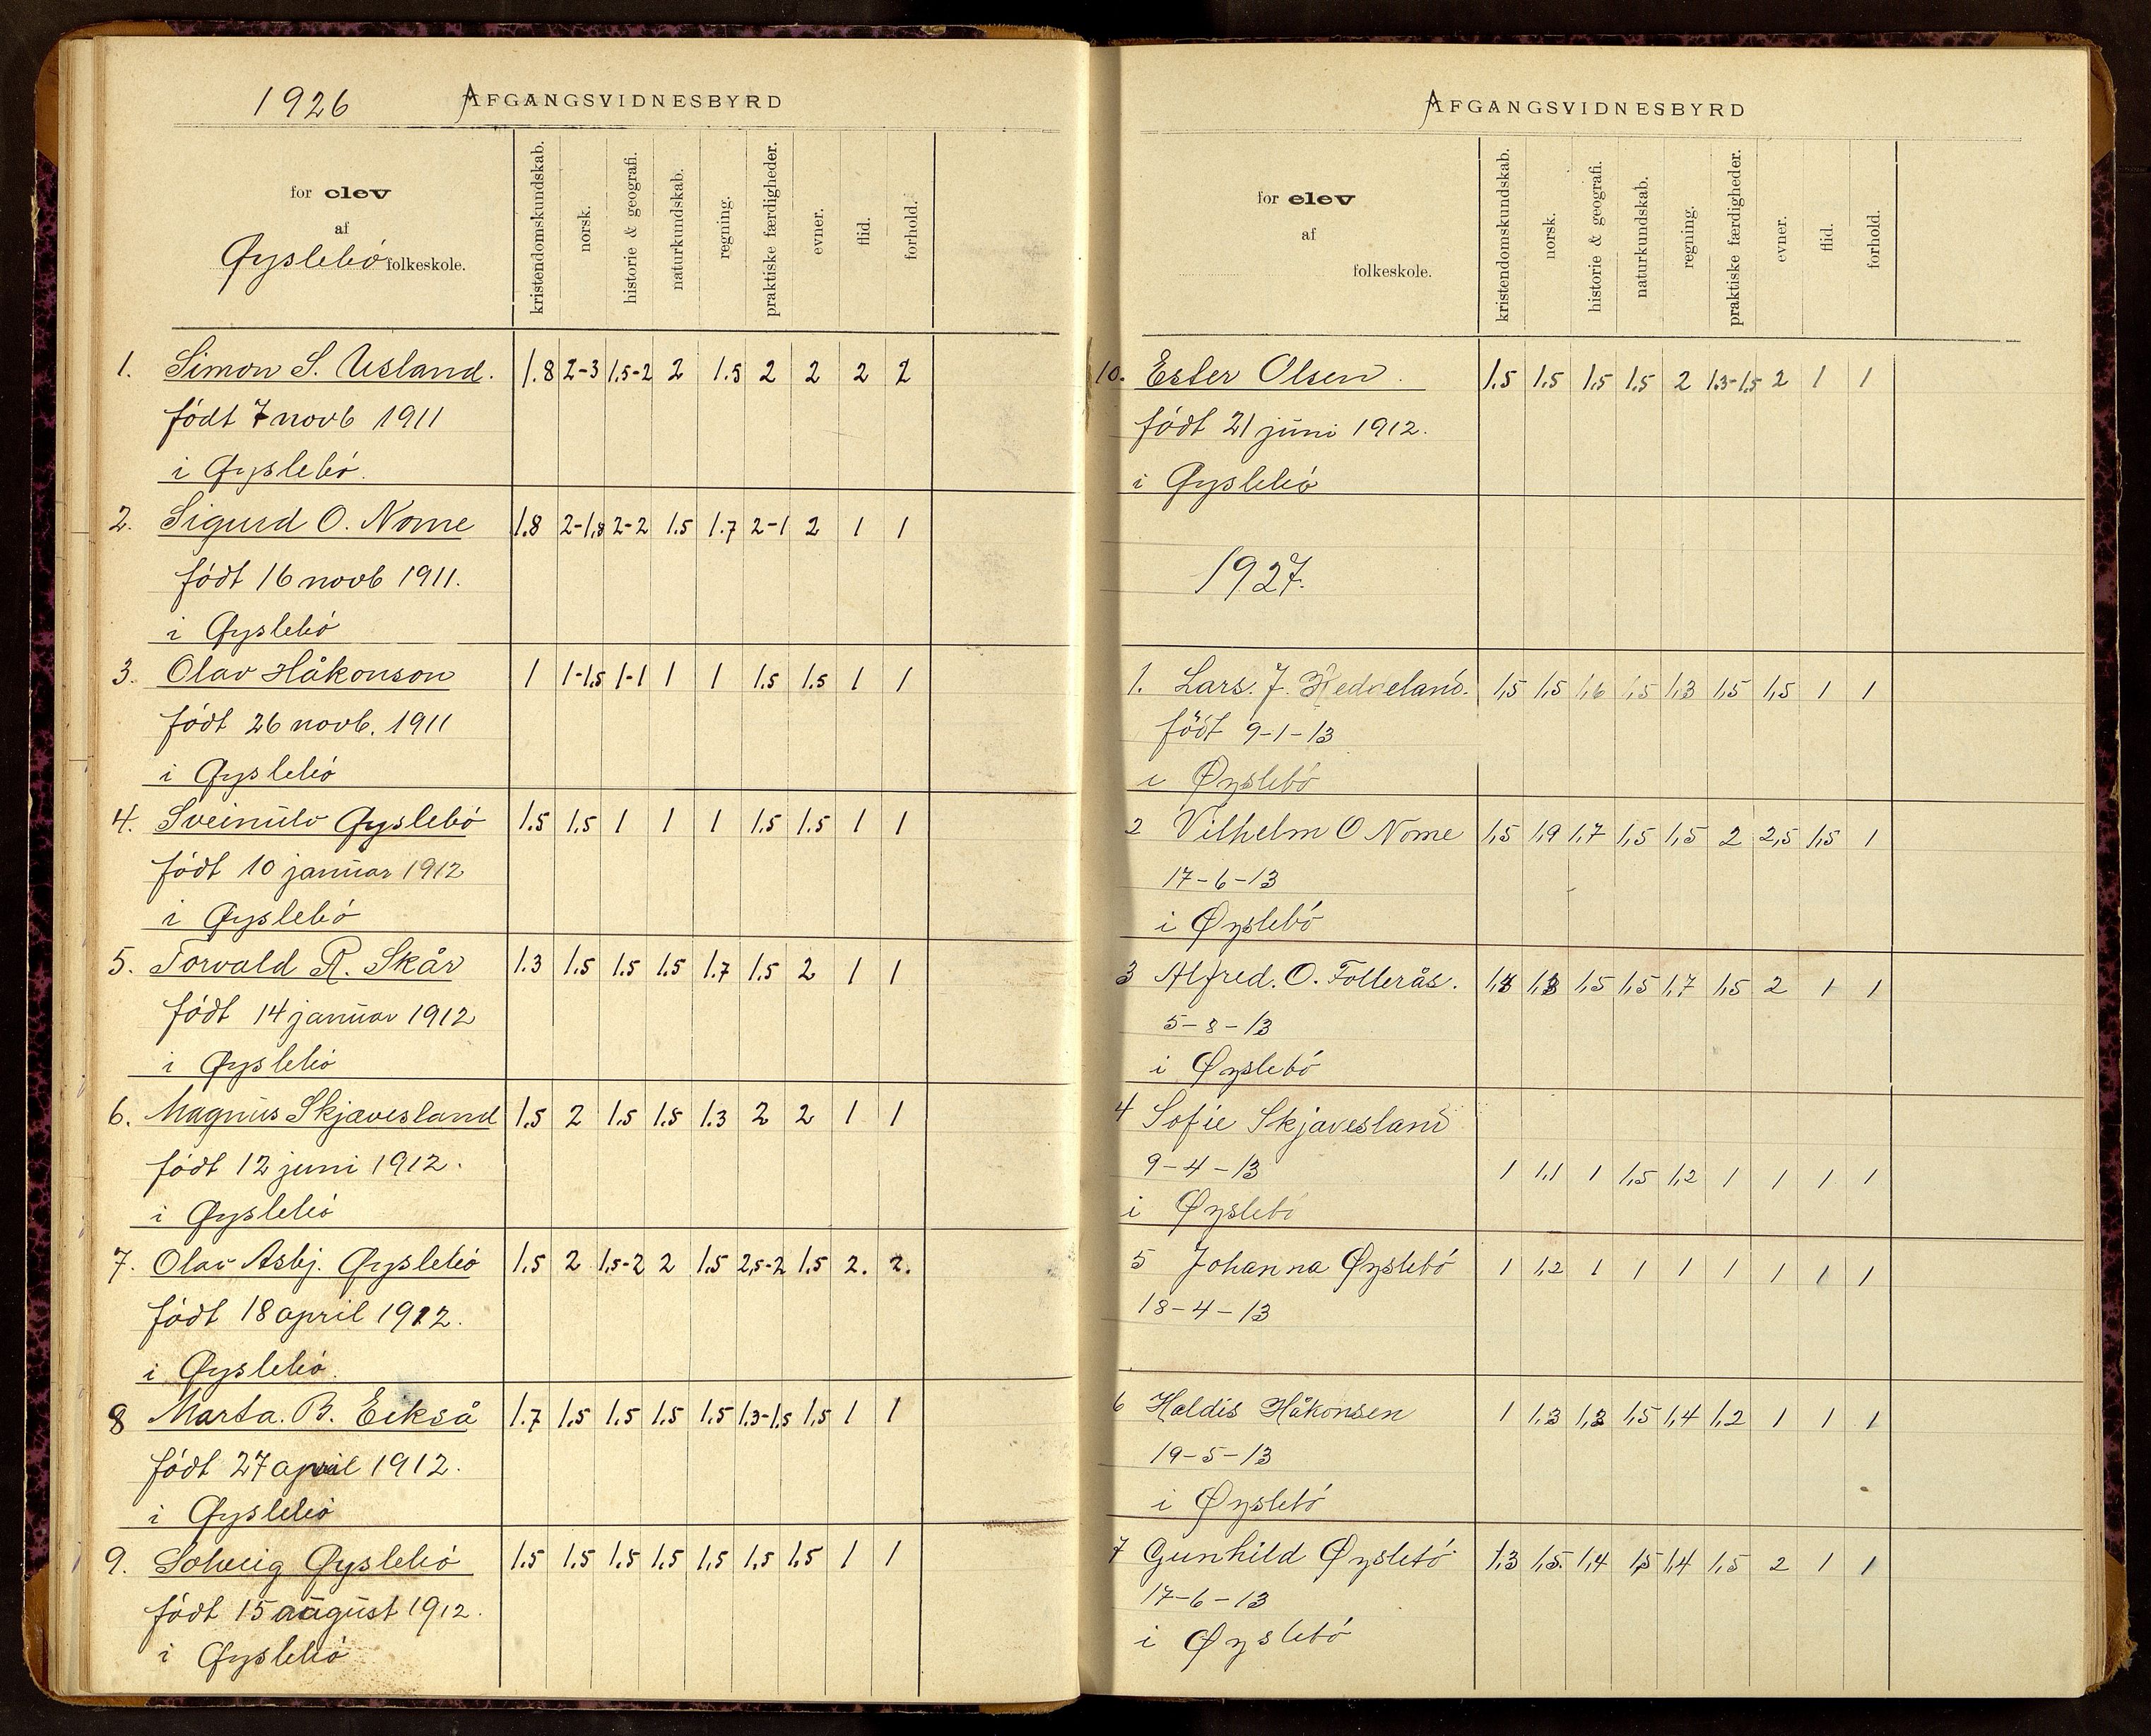 1926 AFGANGSVIDNESBYRD
for elev
af
Øyslebö folkeskole.
kristendomskundskab. norsk. historie & geografi. naturkundskab. regning. praktiske færdigheder. evner. flid. forhold.
1. Simon S. Usland. 1.8 2-3 1,5-2 2 1.5 2 2 2 2
födt 7 novb 1911
i Øyslebö.
2. Sigurd O. Nome 1.8 2-1,8 2-2 1.5 1.7 2-1 2 1 1
födt 16 novb 1911.
i Øyslebö
3. Olav Håkonson 1 1-1.5 1-1 1 1 1.5 1.5 1 1
födt 26 novb. 1911
i Øyslebö
4. Sveinulv Øyslebö 1.5 1.5 1 1 1 1.5 1.5 1 1
födt 10 januar 1912
i Øyslebö
5. Torvald R. Skår 1.3 1.5 1.5 1.5 1.7 1.5 2 1 1
födt 14 januar 1912
i Øyslebö
6. Magnus Skjævesland 1.5 2 1.5 1.5 1.3 2 2 1 1
födt 12 juni 1912.
i Øyslebö
7. Olav Asbj. Øyslebö 1.5 2 1,5-2 2 1.5 2,5-2 1.5 2. 2.
födt 18 april 1912.
i Øyslebö.
8 Marta. B. Eikså 1.7 1,5 1.5 1.5 1.5 1.3-1,5 1,5 1 1
födt 27 april 1912.
i Øyslebö
9. Solveig Øyslebö 1.5 1.5 1.5 1.5 1,5 1,5 1,5 1 1
födt 15 august 1912.
i Øyslebö
AFGANGSVIDNESBYRD
for elev
af
folkeskole.
kristendomskundskab. norsk. historie & geografi. naturkundskab. regning. praktiske færdigheder. evner. flid. forhold.
10. Ester Olsen. 1.5 1.5 1.5 1.5 2 1.3-1,5 2 1 1
födt 21 juni 1912.
i Øyslebö
1927.
1. Lars. J. Heddeland. 1,5 1,5 1,6 1,5 1,3 1,5 1,5 1 1
födt 9-1-13
i Øyslebö
2 Vilhelm O Nome 1,5 1,9 1,7 1,5 1,5 2 2,5 1,5 1
17-6-13
i Øyslebö
3 Alfred. O. Follerås. 1,8 1,3 1,5 1,5 1,7 1,5 2 1 1
5-8-13
i Øyslebö
4 Sofie Skjævesland
9-4-13 1 1,1 1 1,5 1,2 1 1 1 1
i Øyslebö
5 Johanna Øyslebö 1 1,2 1 1 1 1 1 1 1
18-4-13
6 Haldis Håkonsen 1 1,3 1,3 1,5 1,4 1,2 1 1 1
19-5-13
i Øyslebö
7 Gunhild Øyslebö 1,3 1,5. 1,4 1,5 1,4 1,5 2 1 1
17-6-13
i Øyslebö